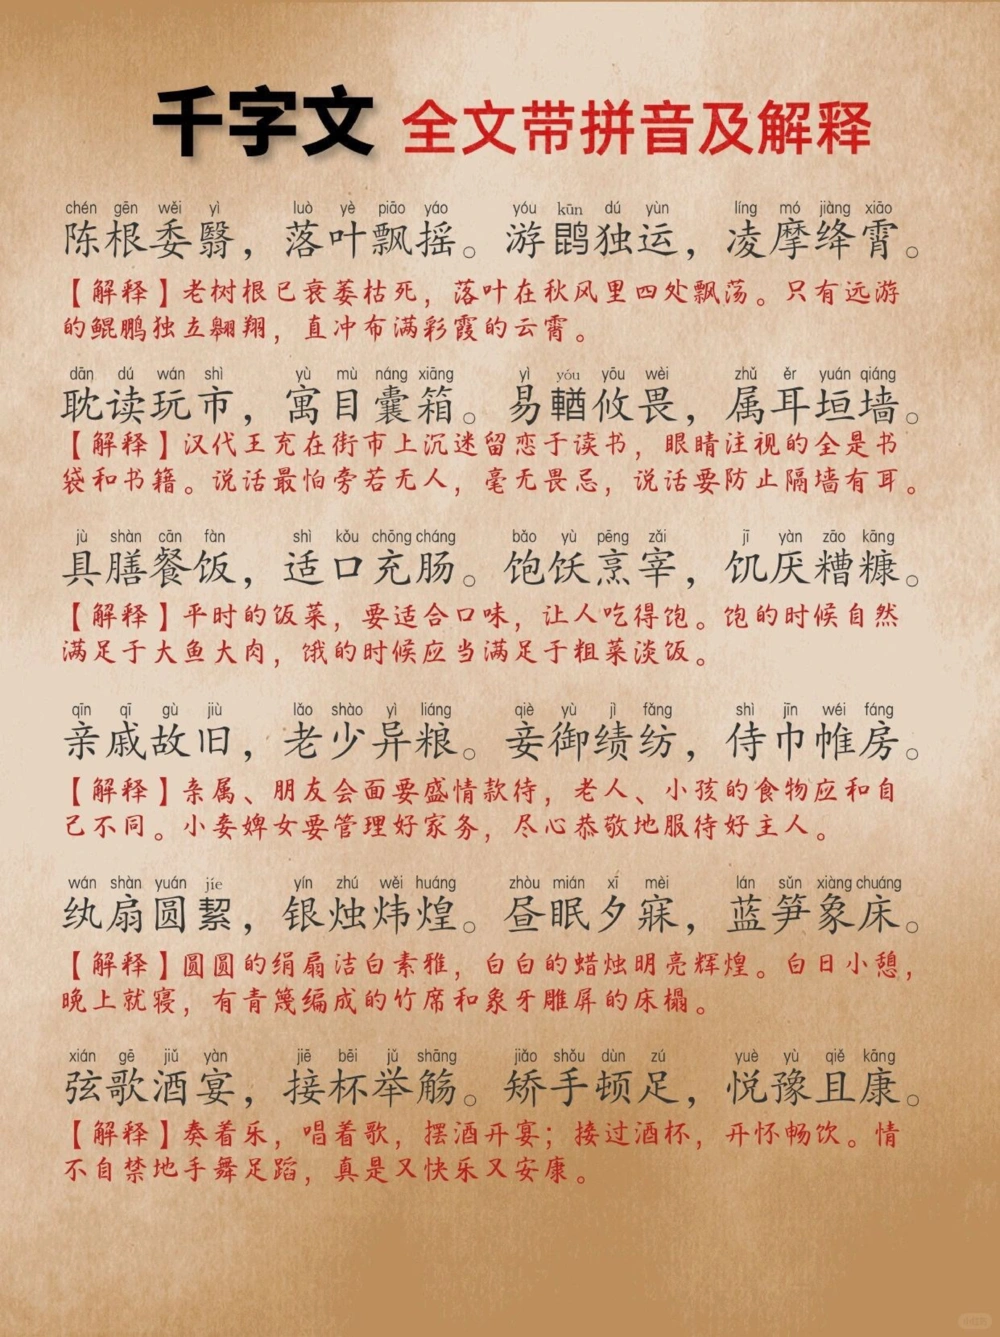 千字文 全文带拼音及解释
chén gēn wěi yì luò yè piāo yáo yóu kūn dú yùn líng mó jiàng xiāo
陈根委翳，落叶飘摇。游鹍独运，凌摩绛霄。
【解释】老树根已衰萎枯死，落叶在秋风里四处飘荡。只有远游
的鲲鹏独立翱翔，直冲布满彩霞的云霄。
dān dú wán shì yù mù náng xiāng yì yóu yōu wèi zhǔ ěr yuán qiáng
耽读玩市，寓目囊箱。易輶攸畏，属耳垣墙。
【解释】汉代王充在街市上沉迷留恋于读书，眼睛注视的全是书
袋和书籍。说话最怕旁若无人，毫无畏忌，说话要防止隔墙有耳。
jù shàn cān fàn shì kǒu chōng cháng bǎo yù pēng zǎi jī yàn zāo kāng
具膳餐饭，适口充肠。饱饫烹宰，饥厌糟糠。
【解释】平时的饭菜，要适合口味，让人吃得饱。饱的时候自然
满足于大鱼大肉，饿的时候应当满足于粗菜淡饭。
qīn qī gù jiù lǎo shào yì liáng qiè yù jì fǎng shì jīn wéi fáng
亲戚故旧，老少异粮。妾御绩纺，侍巾帷房。
【解释】亲属、朋友会面要盛情款待，老人、小孩的食物应和自
己不同。小妾婢女要管理好家务，尽心恭敬地服待好主人。
wán shàn yuán jíe yín zhú wěi huáng zhòu mián xī mèi lán sǔn xiàng chuáng
纨扇圆絜，银烛炜煌。昼眠夕寐，蓝笋象床。
【解释】圆圆的绢扇洁白素雅，白白的蜡烛明亮辉煌。白日小憩，
晚上就寝，有青篾编成的竹席和象牙雕屏的床榻。
xián gē jiǔ yàn jiē bēi jǔ shāng jiǎo shǒu dùn zú yuè yù qiě kāng
弦歌酒宴，接杯举觞。矫手顿足，悦豫且康。
【解释】奏着乐，唱着歌，摆酒开宴；接过酒杯，开怀畅饮。情
不自禁地手舞足蹈，真是又快乐又安康。